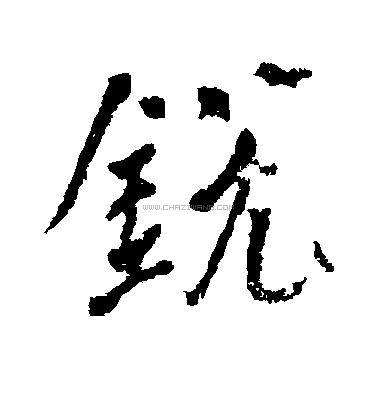 銳
WWW.CHAZIDIAN.COM